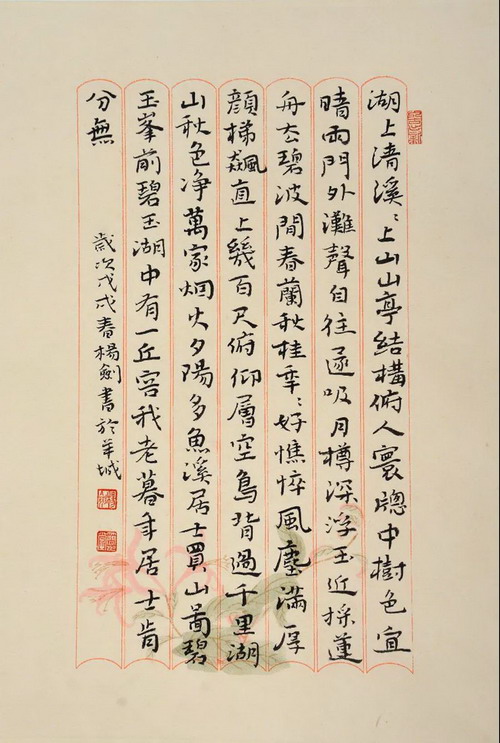 湖上清溪〻上山山亭結構俯人寰牕中樹色宜
晴雨門外灘聲自往還吸月樽深浮玉近採蓮
舟去碧波間春蘭秋桂秊〻好憔悴風塵滿厚
顏梯飆直上幾百尺俯仰層空鳥背過千里湖
山秋色净萬家烟火夕陽多魚溪居士買山啚碧
玉峯前碧玉湖中有一丘容我老暮年居士肯
分無
歲次戊戌春楊劍書於羊城